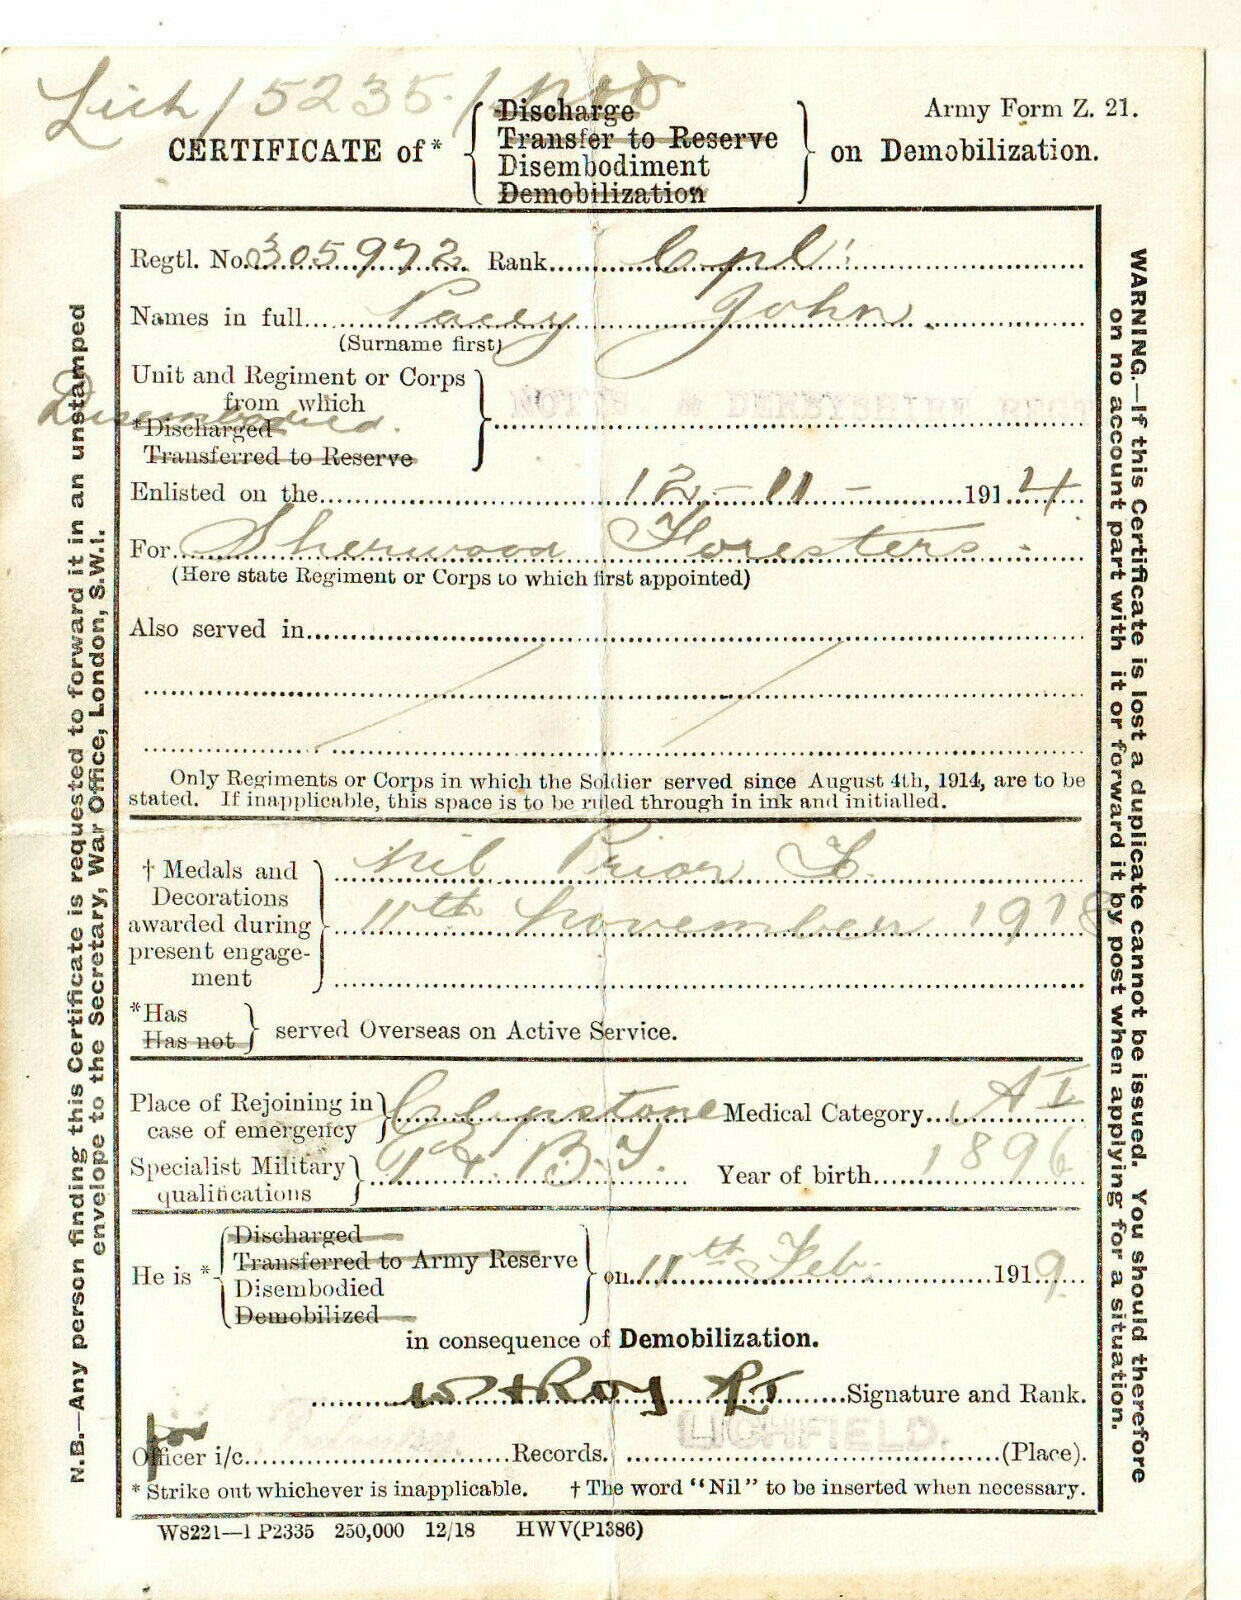 Lich / 5235 /
Army Form Z. 21.
Discharge
Transfer to Reserve
CERTIFICATE of* Disembodiment on Demobilization.
Demobilization
Regtl. No. 305972 Rank Cpl:
Names in full Pacey John
(Surname first)
Unit and Regiment or Corps
from which
Disembodied.
*Discharged
Transferred to Reserve
NOTTS & DERBYSHIRE REGT
Enlisted on the 12-11- 1914
For Sherwood Foresters.
(Here state Regiment or Corps to which first appointed)
Also served in
Only Regiments or Corps in which the Soldier served since August 4th, 1914, are to be
stated. If inapplicable, this space is to be ruled through in ink and initialled.
† Medals and
Decorations
awarded during
present engage-
ment
Nil Prior To
11th November 1918
*Has
Has not
served Overseas on Active Service.
Place of Rejoining in
case of emergency
Clipstone Medical Category A I
Specialist Military
qualifications
Year of birth 1896
He is *
Discharged
Transferred to Army Reserve
Disembodied
Demobilized
on 11th Feb: 1919.
in consequence of Demobilization.
Signature and Rank.
for
LICHFIELD.
Officer i/c Records. (Place).
* Strike out whichever is inapplicable. † The word "Nil" to be inserted when necessary.
W8221—1 P2335 250,000 12/18 HWV(P1386)
N.B.—Any person finding this Certificate is requested to forward it in an unstamped
envelope to the Secretary, War Office, London, S.W.1.
WARNING.—If this Certificate is lost a duplicate cannot be issued. You should therefore
on no account part with it or forward it by post when applying for a situation.